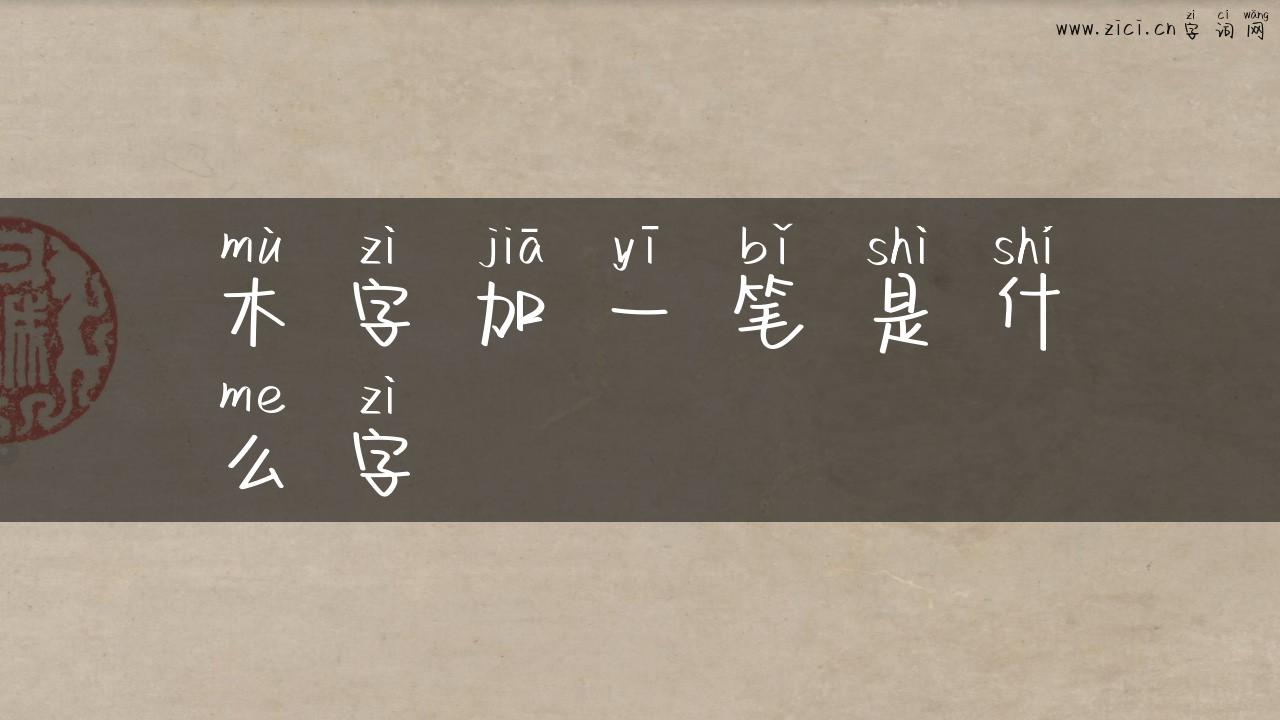 www.zici.cn zì cí wǎng
字词网
mù zì jiā yī bǐ shì shí
木字加一笔是什
me zì
么字